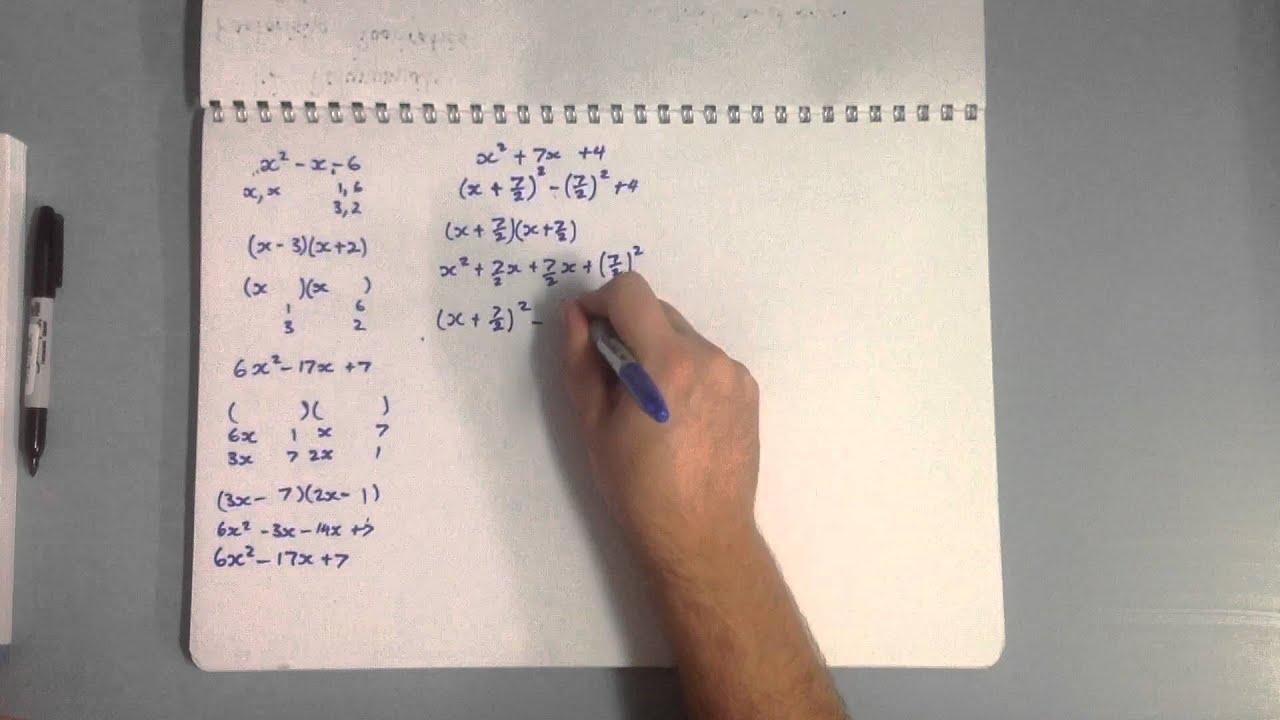 x² - x - 6
x, x 1, 6
3, 2
(x - 3)(x + 2)
(x )(x )
1 6
3 2
6x² - 17x + 7
( )( )
6x 1 x 7
3x 7 2x 1
(3x - 7)(2x - 1)
6x² - 3x - 14x + 7
6x² - 17x + 7
x² + 7x + 4
(x + 7/2)² - (7/2)² + 4
(x + 7/2)(x + 7/2)
x² + 7/2x + 7/2x + (7/2)²
(x + 7/2)² -